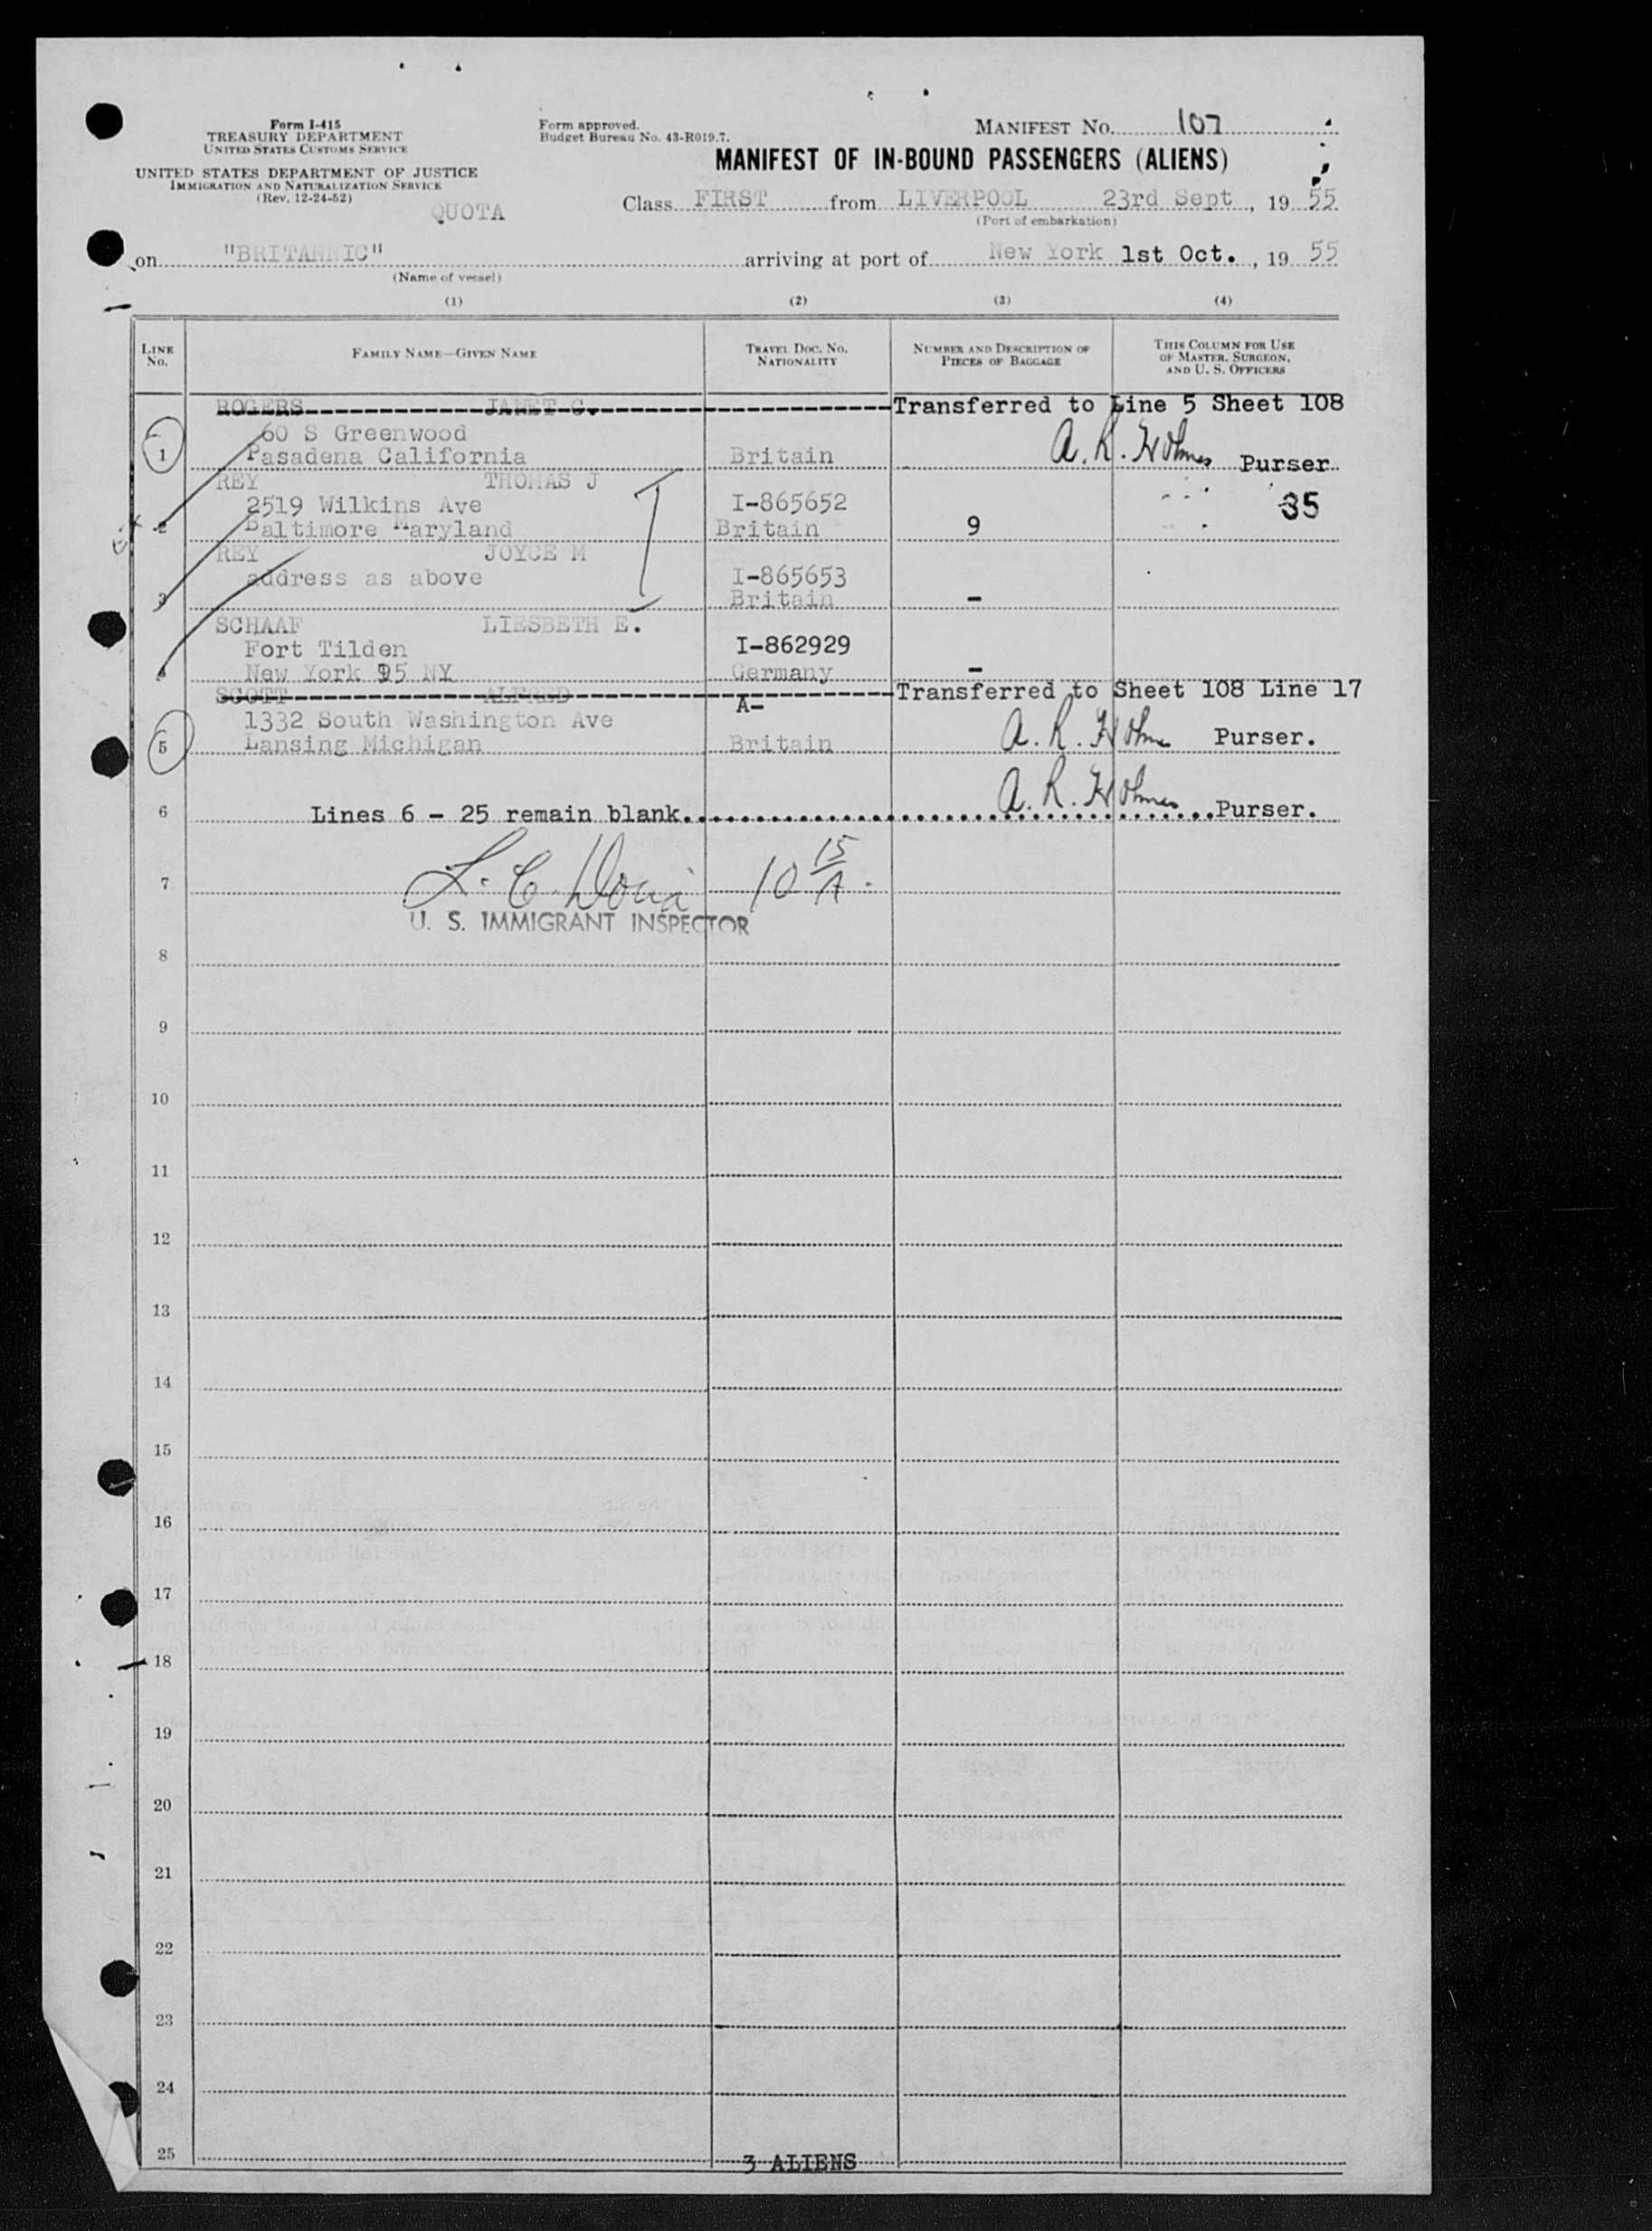 Form I-415
TREASURY DEPARTMENT
UNITED STATES CUSTOMS SERVICE
UNITED STATES DEPARTMENT OF JUSTICE
IMMIGRATION AND NATURALIZATION SERVICE
(Rev. 12-24-52)
QUOTA
Form approved.
Budget Bureau No. 43-R019.7.
MANIFEST NO. 107
MANIFEST OF IN-BOUND PASSENGERS (ALIENS)
Class FIRST from LIVERPOOL 23rd Sept, 19 55
(Port of embarkation)
on "BRITANNIC" arriving at port of New York 1st Oct., 19 55
(Name of vessel)
(1) (2) (3) (4)
LINE NO. FAMILY NAME—GIVEN NAME TRAVEL DOC. NO. NATIONALITY NUMBER AND DESCRIPTION OF PIECES OF BAGGAGE THIS COLUMN FOR USE OF MASTER, SURGEON, AND U. S. OFFICERS
ROGERS JANET C. Transferred to Line 5 Sheet 108
60 S Greenwood
1 Pasadena California Britain A. R. Holmes Purser
REY THOMAS J
2519 Wilkins Ave I-865652 35
2 Baltimore Maryland Britain 9
REY JOYCE M
address as above I-865653
3 Britain -
SCHAAF LIESBETH E.
Fort Tilden I-862929
4 New York 95 NY Germany -
SCOTT ALFRED Transferred to Sheet 108 Line 17
A-
1332 South Washington Ave
5 Lansing Michigan Britain A. R. Holmes Purser.
6 Lines 6 - 25 remain blank. A. R. Holmes Purser.
7 L. C. 10 15/A.
U. S. IMMIGRANT INSPECTOR
8
9
10
11
12
13
14
15
16
17
18
19
20
21
22
23
24
25 3 ALIENS